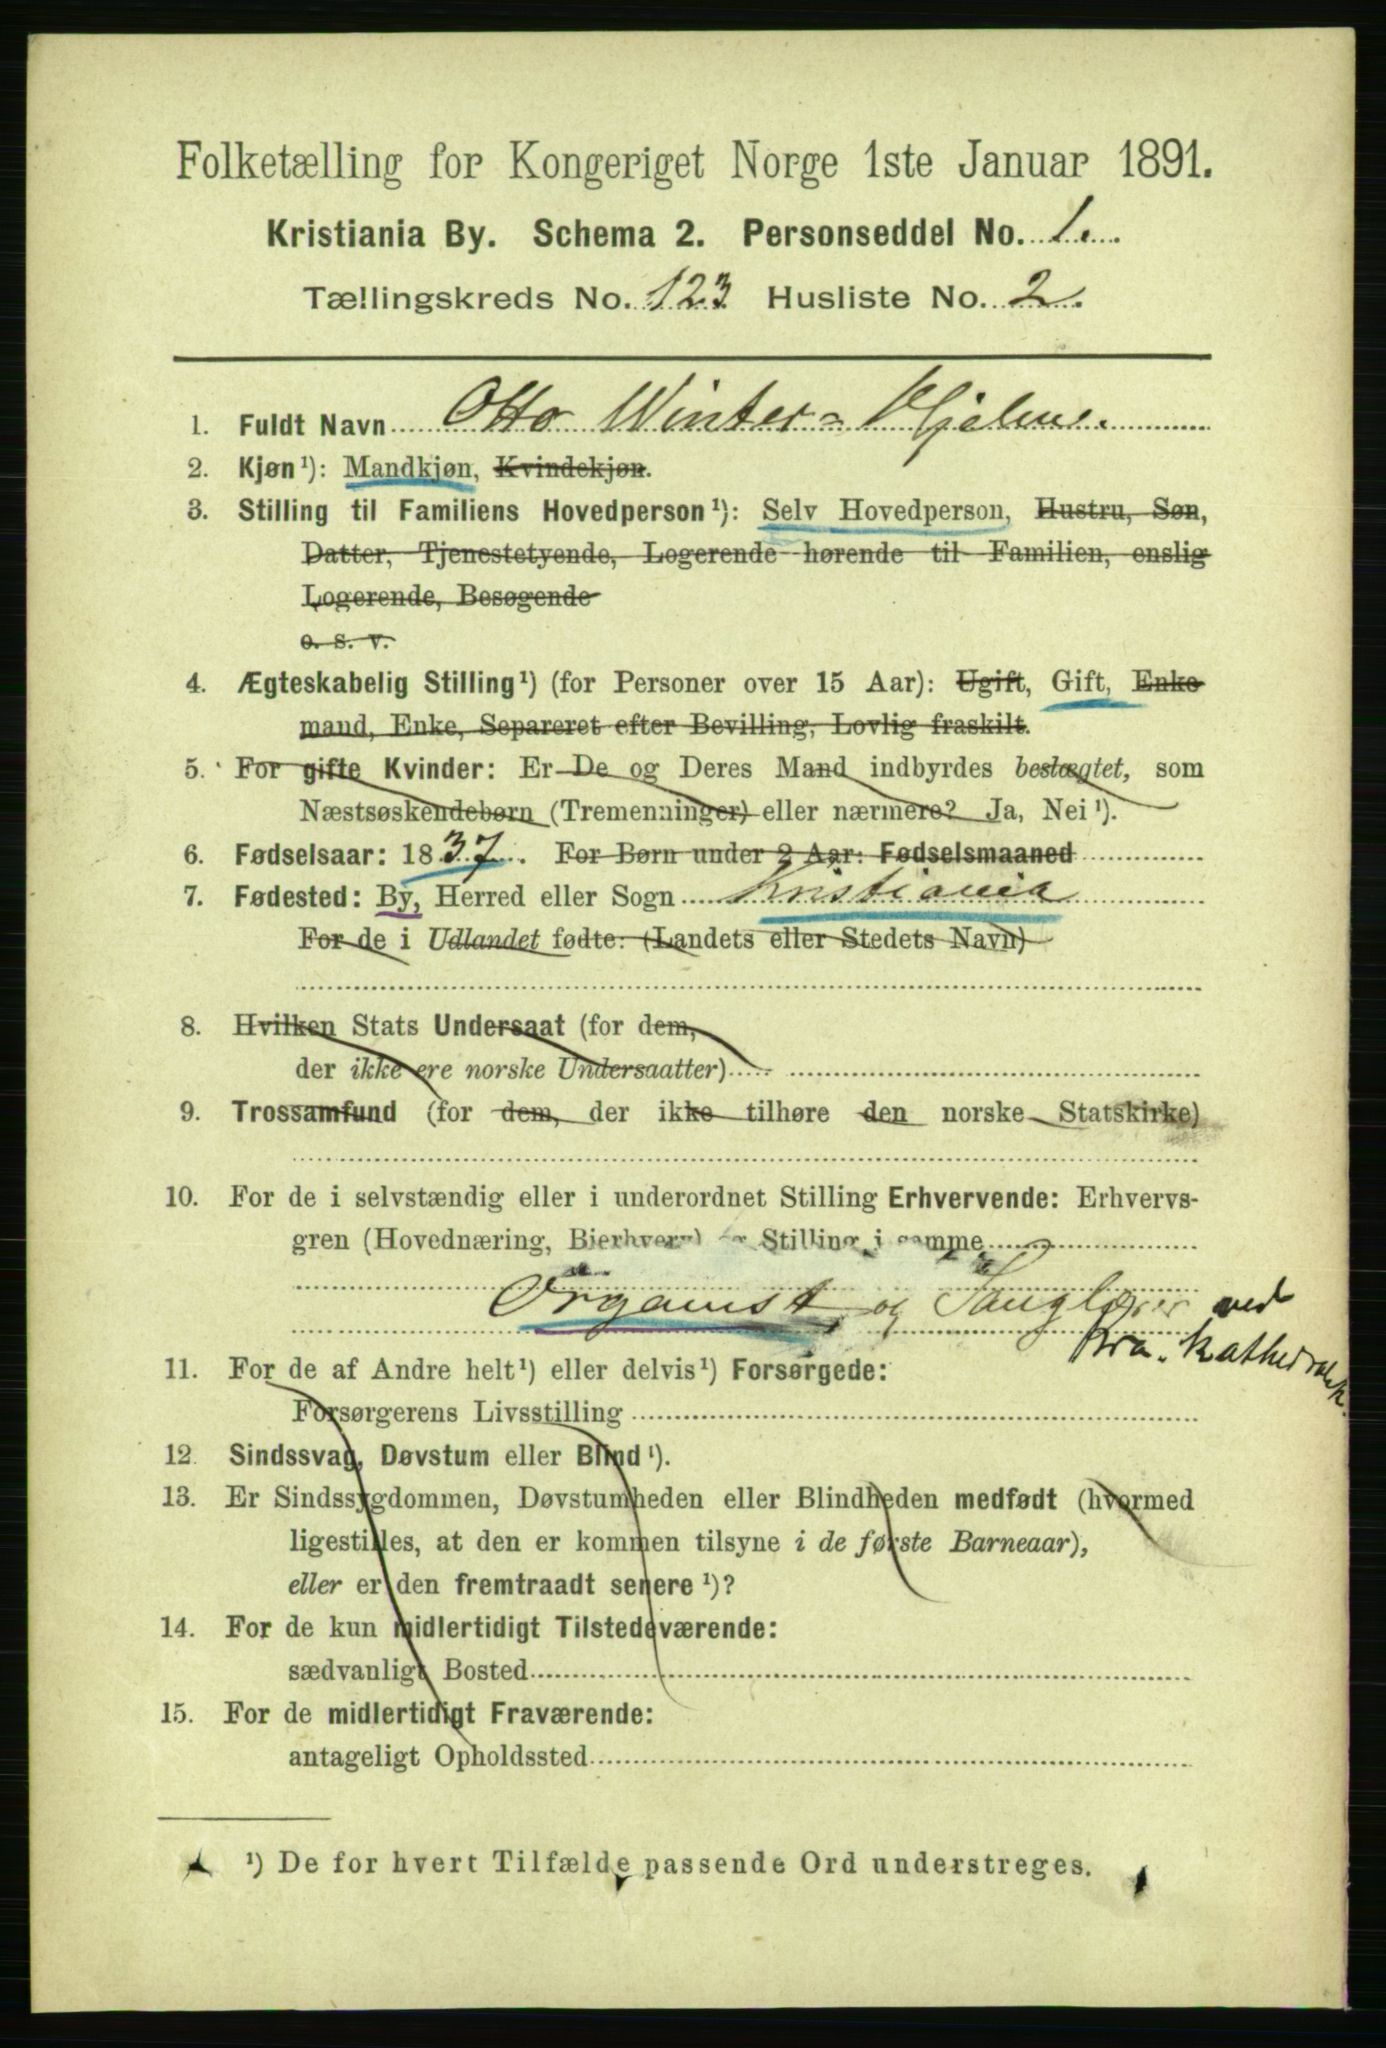 Folketælling for Kongeriget Norge 1ste Januar 1891.
Kristiania By. Schema 2. Personseddel No. 1.
Tællingskreds No. 123 Husliste No. 2.
1. Fuldt Navn Otto Winter-Hjelm.
2. Kjøn ¹): Mandkjøn, Kvindekjøn.
3. Stilling til Familiens Hovedperson ¹): Selv Hovedperson, Hustru, Søn,
Datter, Tjenestetyende, Logerende hørende til Familien, enslig
Logerende, Besøgende
o. s. v.
4. Ægteskabelig Stilling ¹) (for Personer over 15 Aar): Ugift, Gift, Enke-
mand, Enke, Separeret efter Bevilling, Lovlig fraskilt.
5. For gifte Kvinder: Er De og Deres Mand indbyrdes beslægtet, som
Næstsøskendebørn (Tremenninger) eller nærmere? Ja, Nei ¹).
6. Fødselsaar: 1837. For Børn under 2 Aar: Fødselsmaaned
7. Fødested: By, Herred eller Sogn Kristiania
For de i Udlandet fødte: (Landets eller Stedets Navn)
8. Hvilken Stats Undersaat (for dem,
der ikke ere norske Undersaatter)
9. Trossamfund (for dem, der ikke tilhøre den norske Statskirke)
10. For de i selvstændig eller i underordnet Stilling Erhvervende: Erhvervs-
gren (Hovednæring, Bierhverv) og Stilling i samme
Organist og Sanglærer ved
Kra. Kathedralsk.
11. For de af Andre helt ¹) eller delvis ¹) Forsørgede:
Forsørgerens Livsstilling
12. Sindssvag, Døvstum eller Blind ¹).
13. Er Sindssygdommen, Døvstumheden eller Blindheden medfødt (hvormed
ligestilles, at den er kommen tilsyne i de første Barneaar),
eller er den fremtraadt senere ¹)?
14. For de kun midlertidigt Tilstedeværende:
sædvanligt Bosted
15. For de midlertidigt Fraværende:
antageligt Opholdssted
¹) De for hvert Tilfælde passende Ord understreges.